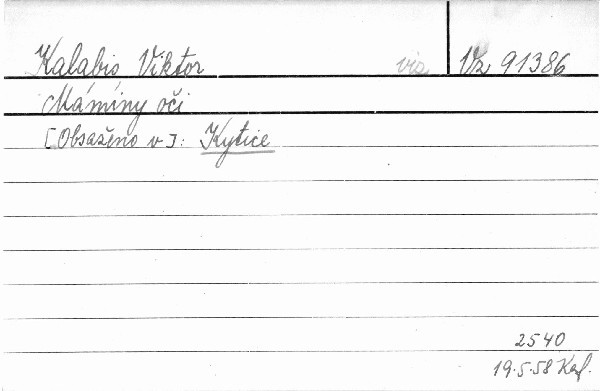 Kalabis Viktor via Vz 91386
Máminy oči
[Obsaženo v]: Kytice
2540
19.5.58 Kaf.